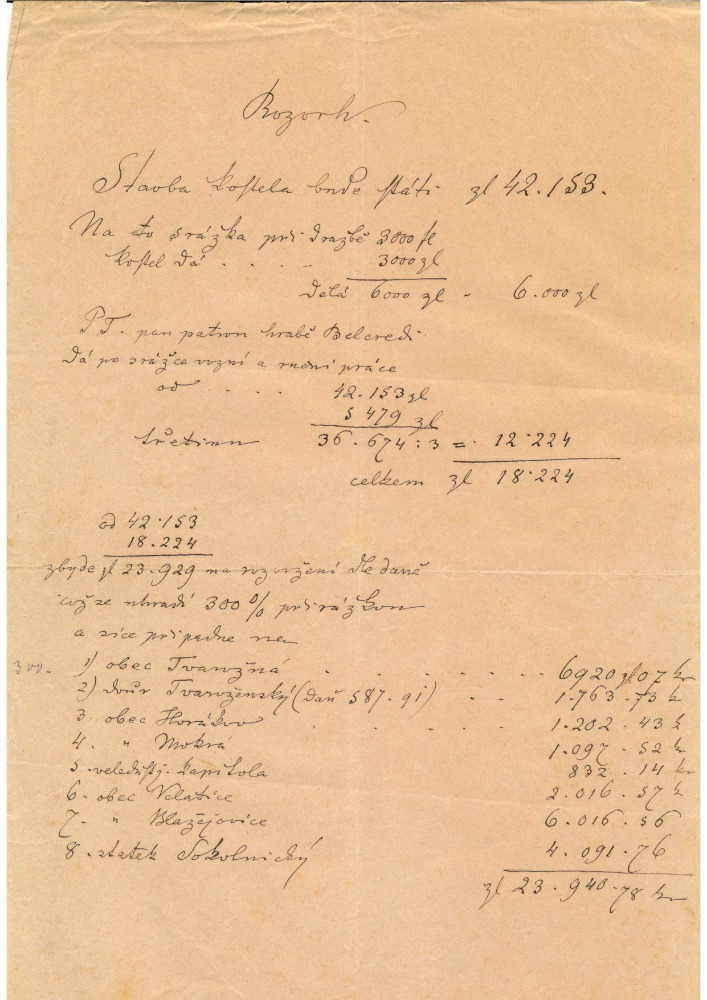 Rozvrh.
Stavba kostela bude státi zl 42.153.
Na to srážka při dražbě 3000 fl
kostel dá . . . . 3000 zl
Dělá 6000 zl - 6.000 zl
P.T. pan patron hrabě Belcredi
dá po srážce vozní a ruční práce
od . . . 42.153 zl
5479 zl
třetinu 36.674 : 3 = 12.224
celkem zl 18.224
od 42.153
18.224
zbyde zl 23.929 na rozvržení dle daně
což se uhradí 300 % přirážkou
a sice připadne na
300. 1) obec Tvarožná . . . . . . 6920 zl 07 kr
2) dvůr Tvaroženský (daň 587.91) . . 1.763.73 k
3 obec Horákov . . . . 1.202.43 k
4. " Mokrá 1.097.52 k
5. veledůstj. kapitola 832.14 kr
6. obec Velatice 2.016.57 k
7. " Blažejovice 6.016.56
8. statek Sokolnický 4.091.76
zl 23.940.78 kr